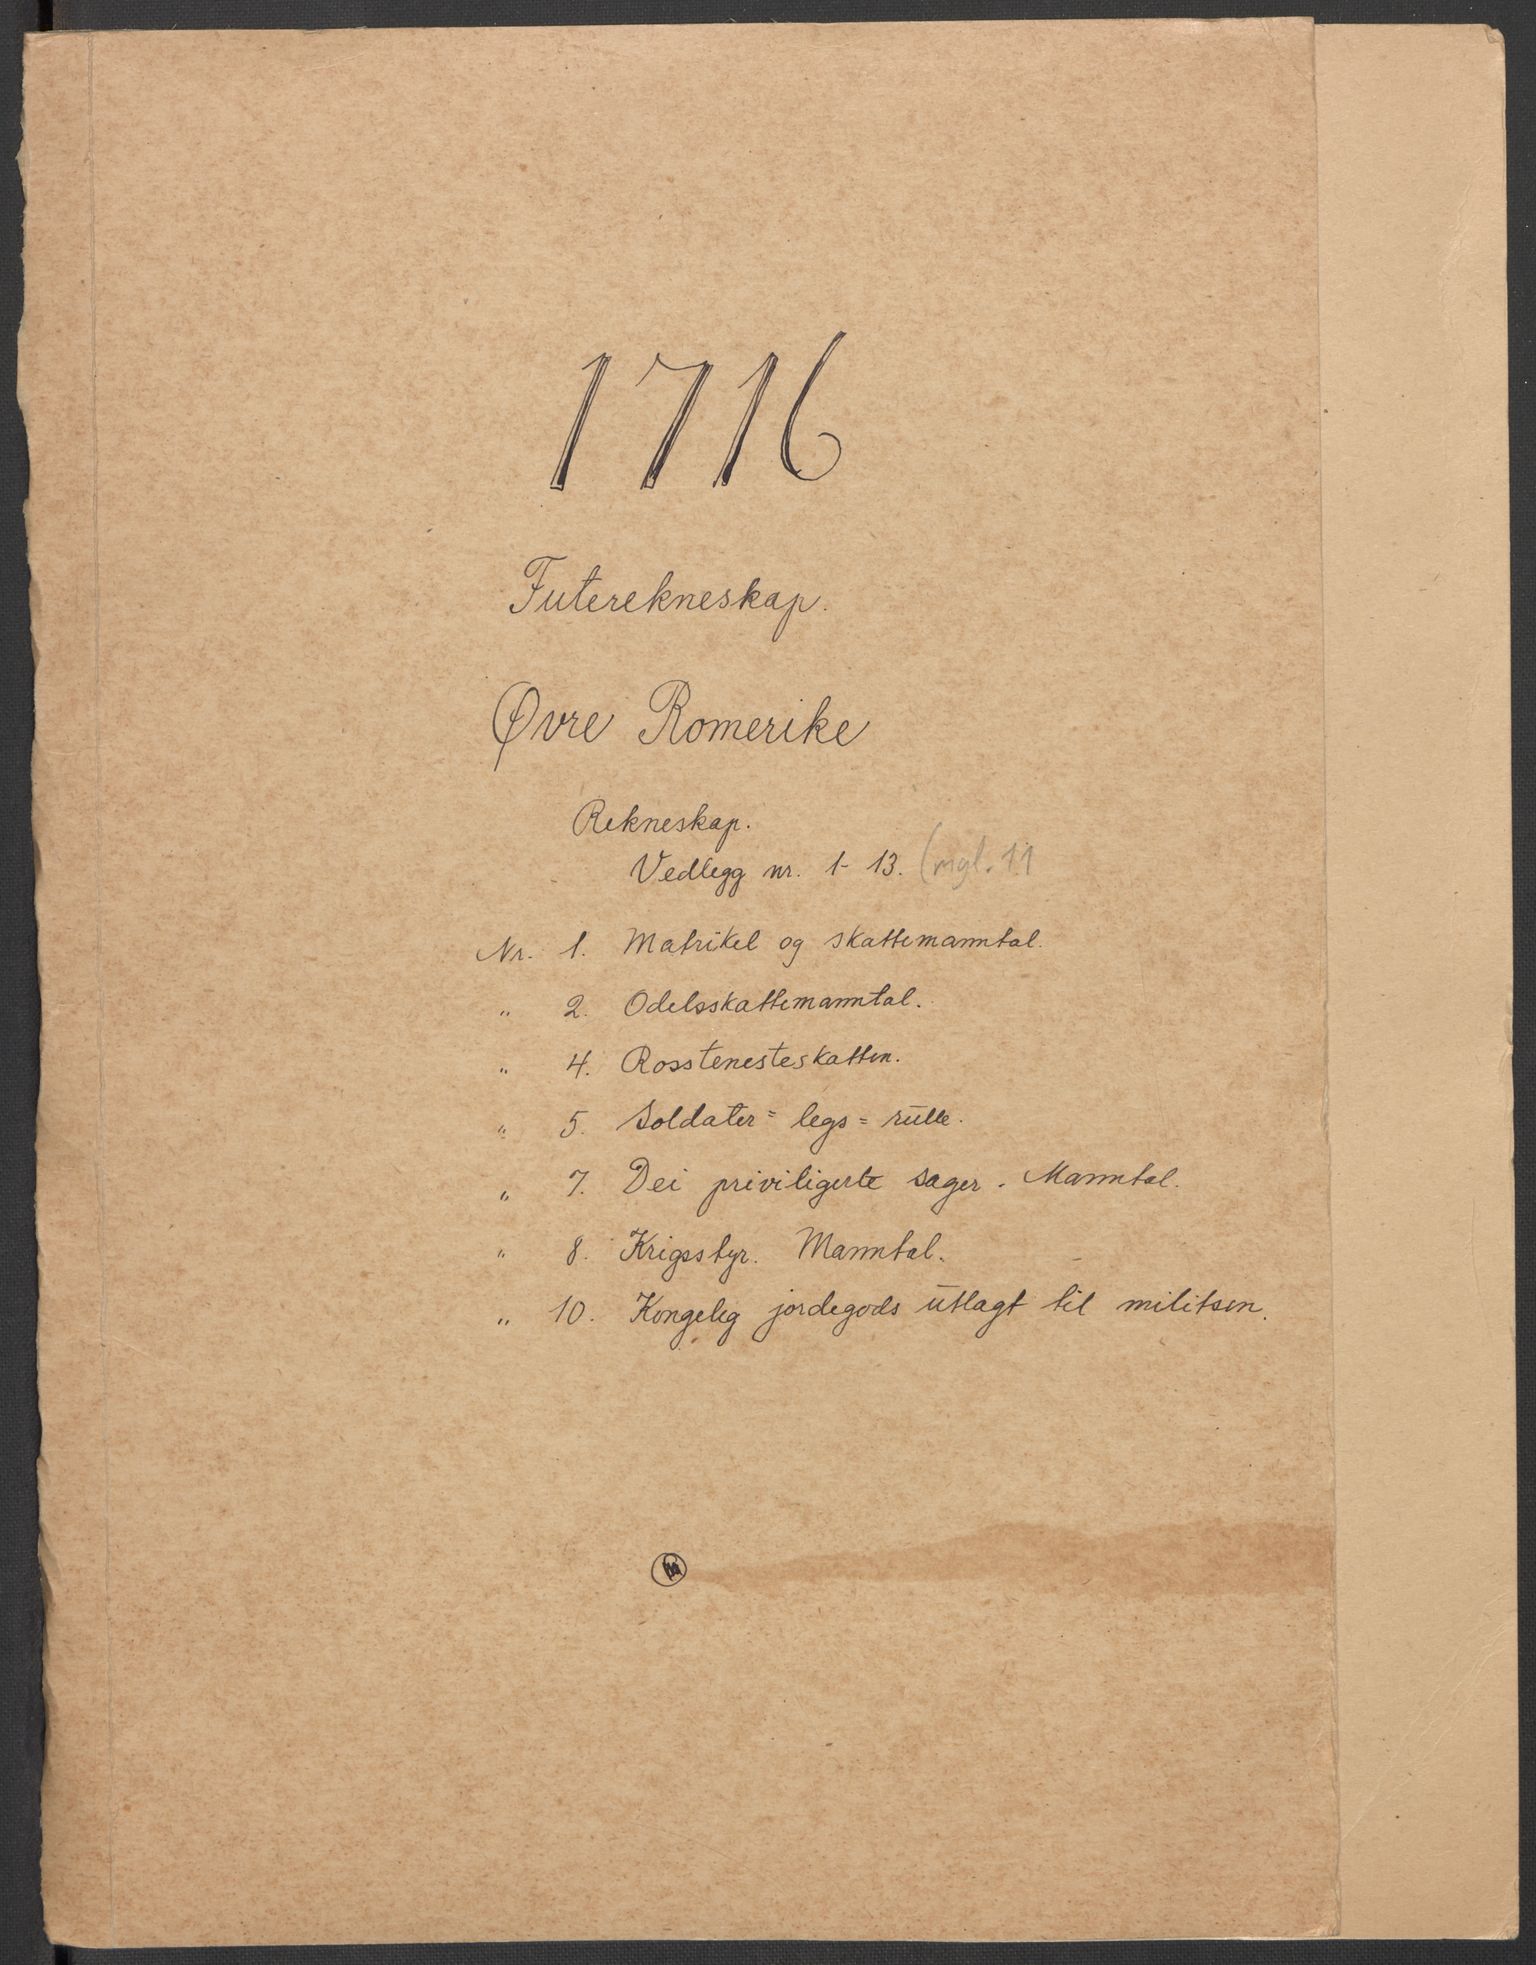 1716
Futerekneskap.
Øvre Romerike
Rekneskap.
Vedlegg nr. 1-13. (mgl. 11
Nr. 1. Matrikel og skattemanntal.
" 2. Odelsskattemanntal.
" 4. Rosstenesteskatten.
" 5. Soldater = legs = rulle.
" 7. Dei priviligerte sager. Manntal.
" 8. Krigsstyr. Manntal.
" 10. Kongeleg jordegods utlagt til militsen.